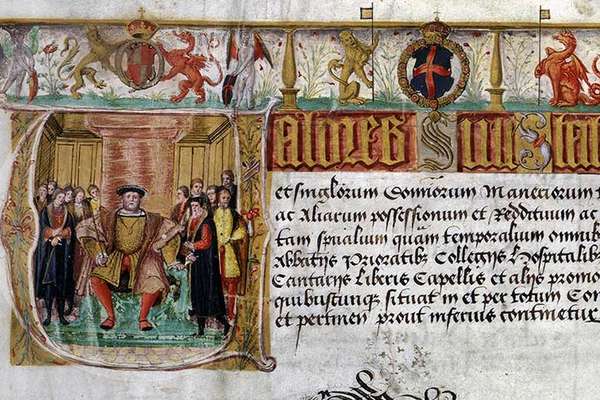 Valores
et singlorum Dominiorum Maneriorum
ac Aliarum possessionum et Reddituum ac
tam spualium quam temporalium omnib
Abbatijs Prioratib Collegijs Hospitalib
Cantarijs Liberis Capellis et alijs promo
quibuscunq situat in et per totum Com
et pertinen prout inferius continetur